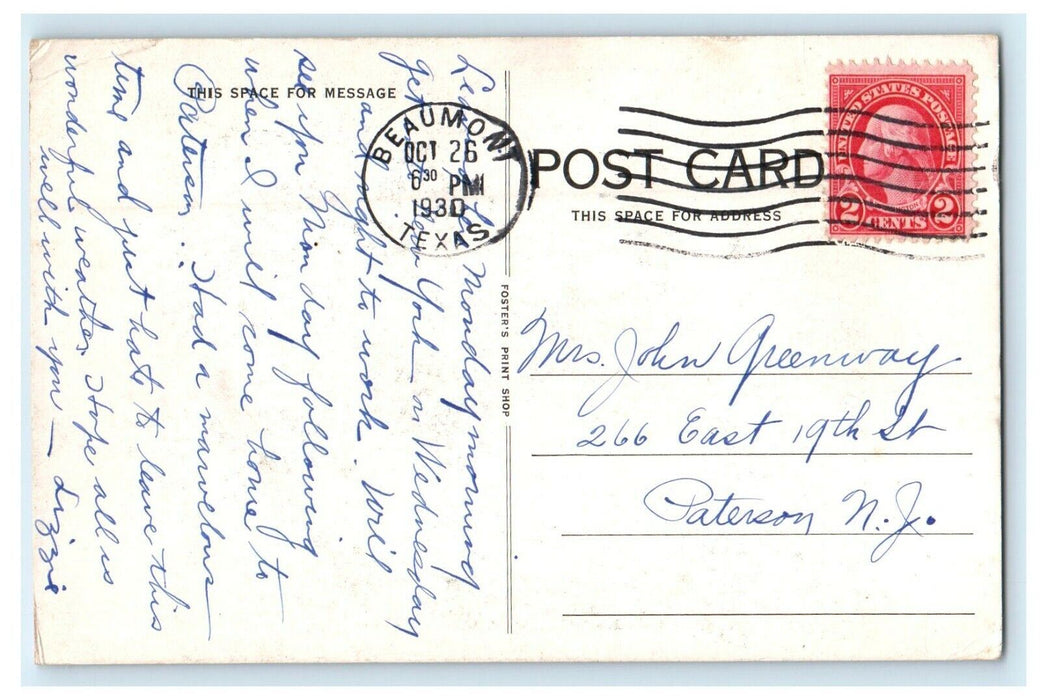 THIS SPACE FOR MESSAGE
Monday morning
get York on Wednesday
and right to work. Will
see you Mon day following
when I will come home to
Paterson. Had a marvelous
time and just hate to leave this
wonderful weather. Hope all is
well with you — Lizzie
BEAUMONT
OCT 26
6 30 PM
1930
TEXAS
POST CARD
THIS SPACE FOR ADDRESS
UNITED STATES POSTAGE
2 CENTS 2
FOSTER'S PRINT SHOP
Mrs. John Greenway
266 East 19th St
Paterson N.J.